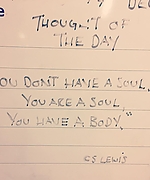 DEC
THOUGHT OF
THE DAY
YOU DON'T HAVE A SOUL.
YOU ARE A SOUL
YOU HAVE A BODY."
CS LEWIS